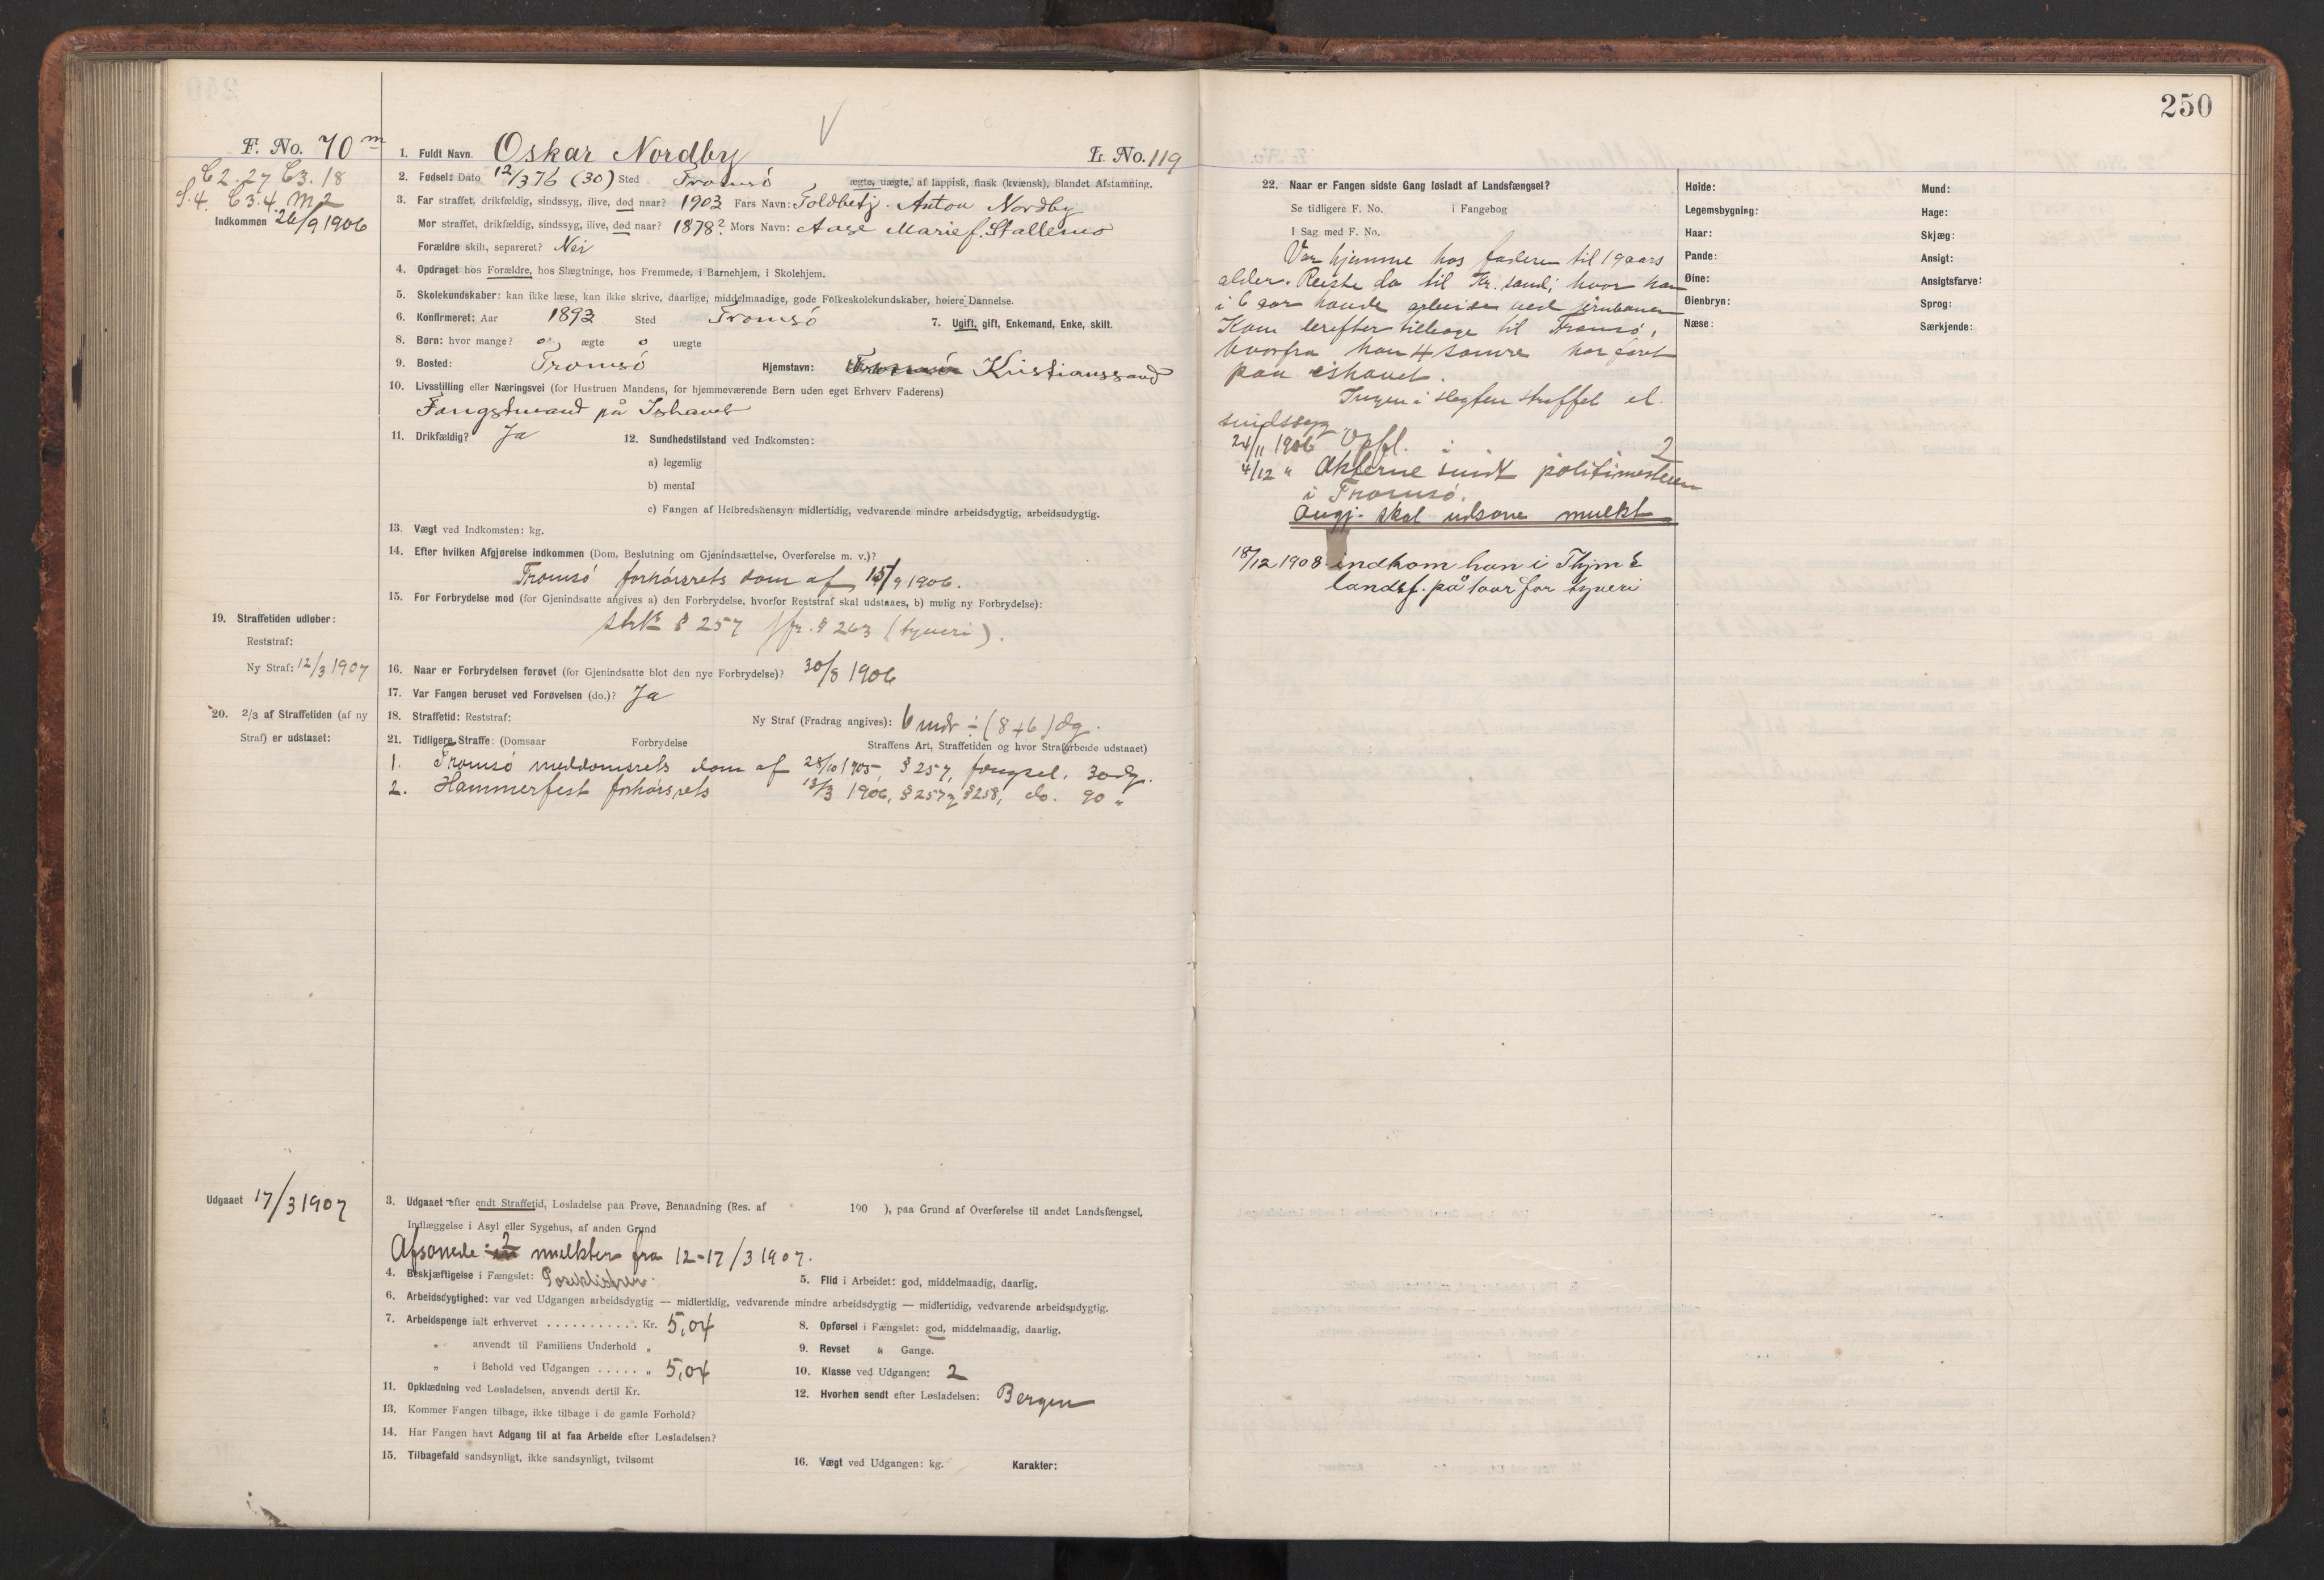 250
F. No. 70 m
C2.27 C3.18
S.4. C3.4. M2
Indkommen 26/9 1906
1. Fuldt Navn. Oskar Nordby L. No. 119
2. Fødsel: Dato 12/3 76 (30) Sted Tromsö ægte, uægte, af lappisk, finsk (kvænsk), blandet Afstamning.
3. Far straffet, drikfældig, sindssyg, ilive, død naar? 1903 Fars Navn: Toldbetj. Anton Nordby
Mor straffet, drikfældig, sindssyg, ilive, død naar? 1878? Mors Navn: Aase Marie f.
Forældre skilt, separeret? Nei
4. Opdraget hos Forældre, hos Slægtninge, hos Fremmede, i Barnehjem, i Skolehjem.
5. Skolekundskaber: kan ikke læse, kan ikke skrive, daarlige, middelmaadige, gode Folkeskolekundskaber, høiere Dannelse.
6. Konfirmeret: Aar 1893 Sted Tromsö 7. Ugift, gift, Enkemand, Enke, skilt.
8. Børn: hvor mange? o ægte o uægte
9. Bosted: Tromsö Hjemstavn: Tromsö Kristianssand
10. Livsstilling eller Næringsvei (for Hustruen Mandens, for hjemmeværende Børn uden eget Erhverv Faderens)
Fangstmand på Ishavet
11. Drikfældig? Ja 12. Sundhedstilstand ved Indkomsten:
a) legemlig
b) mental
c) Fangen af Helbredshensyn midlertidig, vedvarende mindre arbeidsdygtig, arbeidsudygtig.
13. Vægt ved Indkomsten: kg.
14. Efter hvilken Afgjørelse indkommen (Dom, Beslutning om Gjenindsættelse, Overførelse m. v.)?
Tromsö forhörsrets dom af 15/9 1906.
15. For Forbrydelse mod (for Gjenindsatte angives a) den Forbrydelse, hvorfor Reststraf skal udstaaes, b) mulig ny Forbrydelse):
strl § 257 jfr. § 263 (tyveri).
19. Straffetiden udløber:
Reststraf:
Ny Straf: 12/3 1907
16. Naar er Forbrydelsen forøvet (for Gjenindsatte blot den nye Forbrydelse)? 30/8 1906
17. Var Fangen beruset ved Forøvelsen (do.)? Ja
20. 2/3 af Straffetiden (af ny
Straf) er udstaaet:
18. Straffetid: Reststraf: Ny Straf (Fradrag angives): 6 mdr ÷ (8+6) dg.
21. Tidligere Straffe: (Domsaar Forbrydelse Straffens Art, Straffetiden og hvor Strafarbeide udstaaet)
1. Tromsö meddomsrets dom af 28/10 1905, § 257, fængsel, 30 dg.
2. Hammerfest forhörsrets 13/3 1906, § 257 og § 258, do. 90 "
Udgaaet 17/3 1907
3. Udgaaet efter endt Straffetid, Løsladelse paa Prøve, Benaadning (Res. af 190 ), paa Grund af Overførelse til andet Landsfængsel,
Indlæggelse i Asyl eller Sygehus, af anden Grund
Afsonede 2 mulkter fra 12-17/3 1907.
4. Beskjæftigelse i Fængslet: 5. Flid i Arbeidet: god, middelmaadig, daarlig.
6. Arbeidsdygtighed: var ved Udgangen arbeidsdygtig — midlertidig, vedvarende mindre arbeidsdygtig — midlertidig, vedvarende arbeidsudygtig.
7. Arbeidspenge ialt erhvervet . . . . . . . . . . . Kr. 5,04 8. Opførsel i Fængslet: god, middelmaadig, daarlig.
" anvendt til Familiens Underhold " 9. Revset " Gange.
" i Behold ved Udgangen . . . . . " 5,04 10. Klasse ved Udgangen: 2
11. Opklædning ved Løsladelsen, anvendt dertil Kr. 12. Hvorhen sendt efter Løsladelsen: Bergen
13. Kommer Fangen tilbage, ikke tilbage i de gamle Forhold?
14. Har Fangen havt Adgang til at faa Arbeide efter Løsladelsen?
15. Tilbagefald sandsynligt, ikke sandsynligt, tvilsomt 16. Vægt ved Udgangen: kg. Karakter:
22. Naar er Fangen sidste Gang løsladt af Landsfængsel?
Se tidligere F. No. i Fangebog
I Sag med F. No.
Var hjemme hos faderen til 19 aars
alder. Reiste da til Kr.sand, hvor han
i 6 aar havde arbeide ved jernbanen
Kom derefter tilbage til Tromsö,
hvorfra han 4 somre har faret
paa ishavet.
Ingen i slegten straffet el.
sindssyg.
24/11 1906 Opfl. i 2
4/12 " Akterne sendt politimesteren
i Tromsö.
Angj. skal udsone mulkt
18/12 1908 indkom han i Thjm's
landsf. på 1 aar for tyveri
Høide: Mund:
Legemsbygning: Hage:
Haar: Skjæg:
Pande: Ansigt:
Øine: Ansigtsfarve:
Øienbryn: Sprog:
Næse: Særkjende: